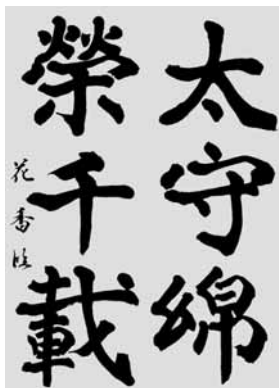 太守綿
榮千載
花香臨